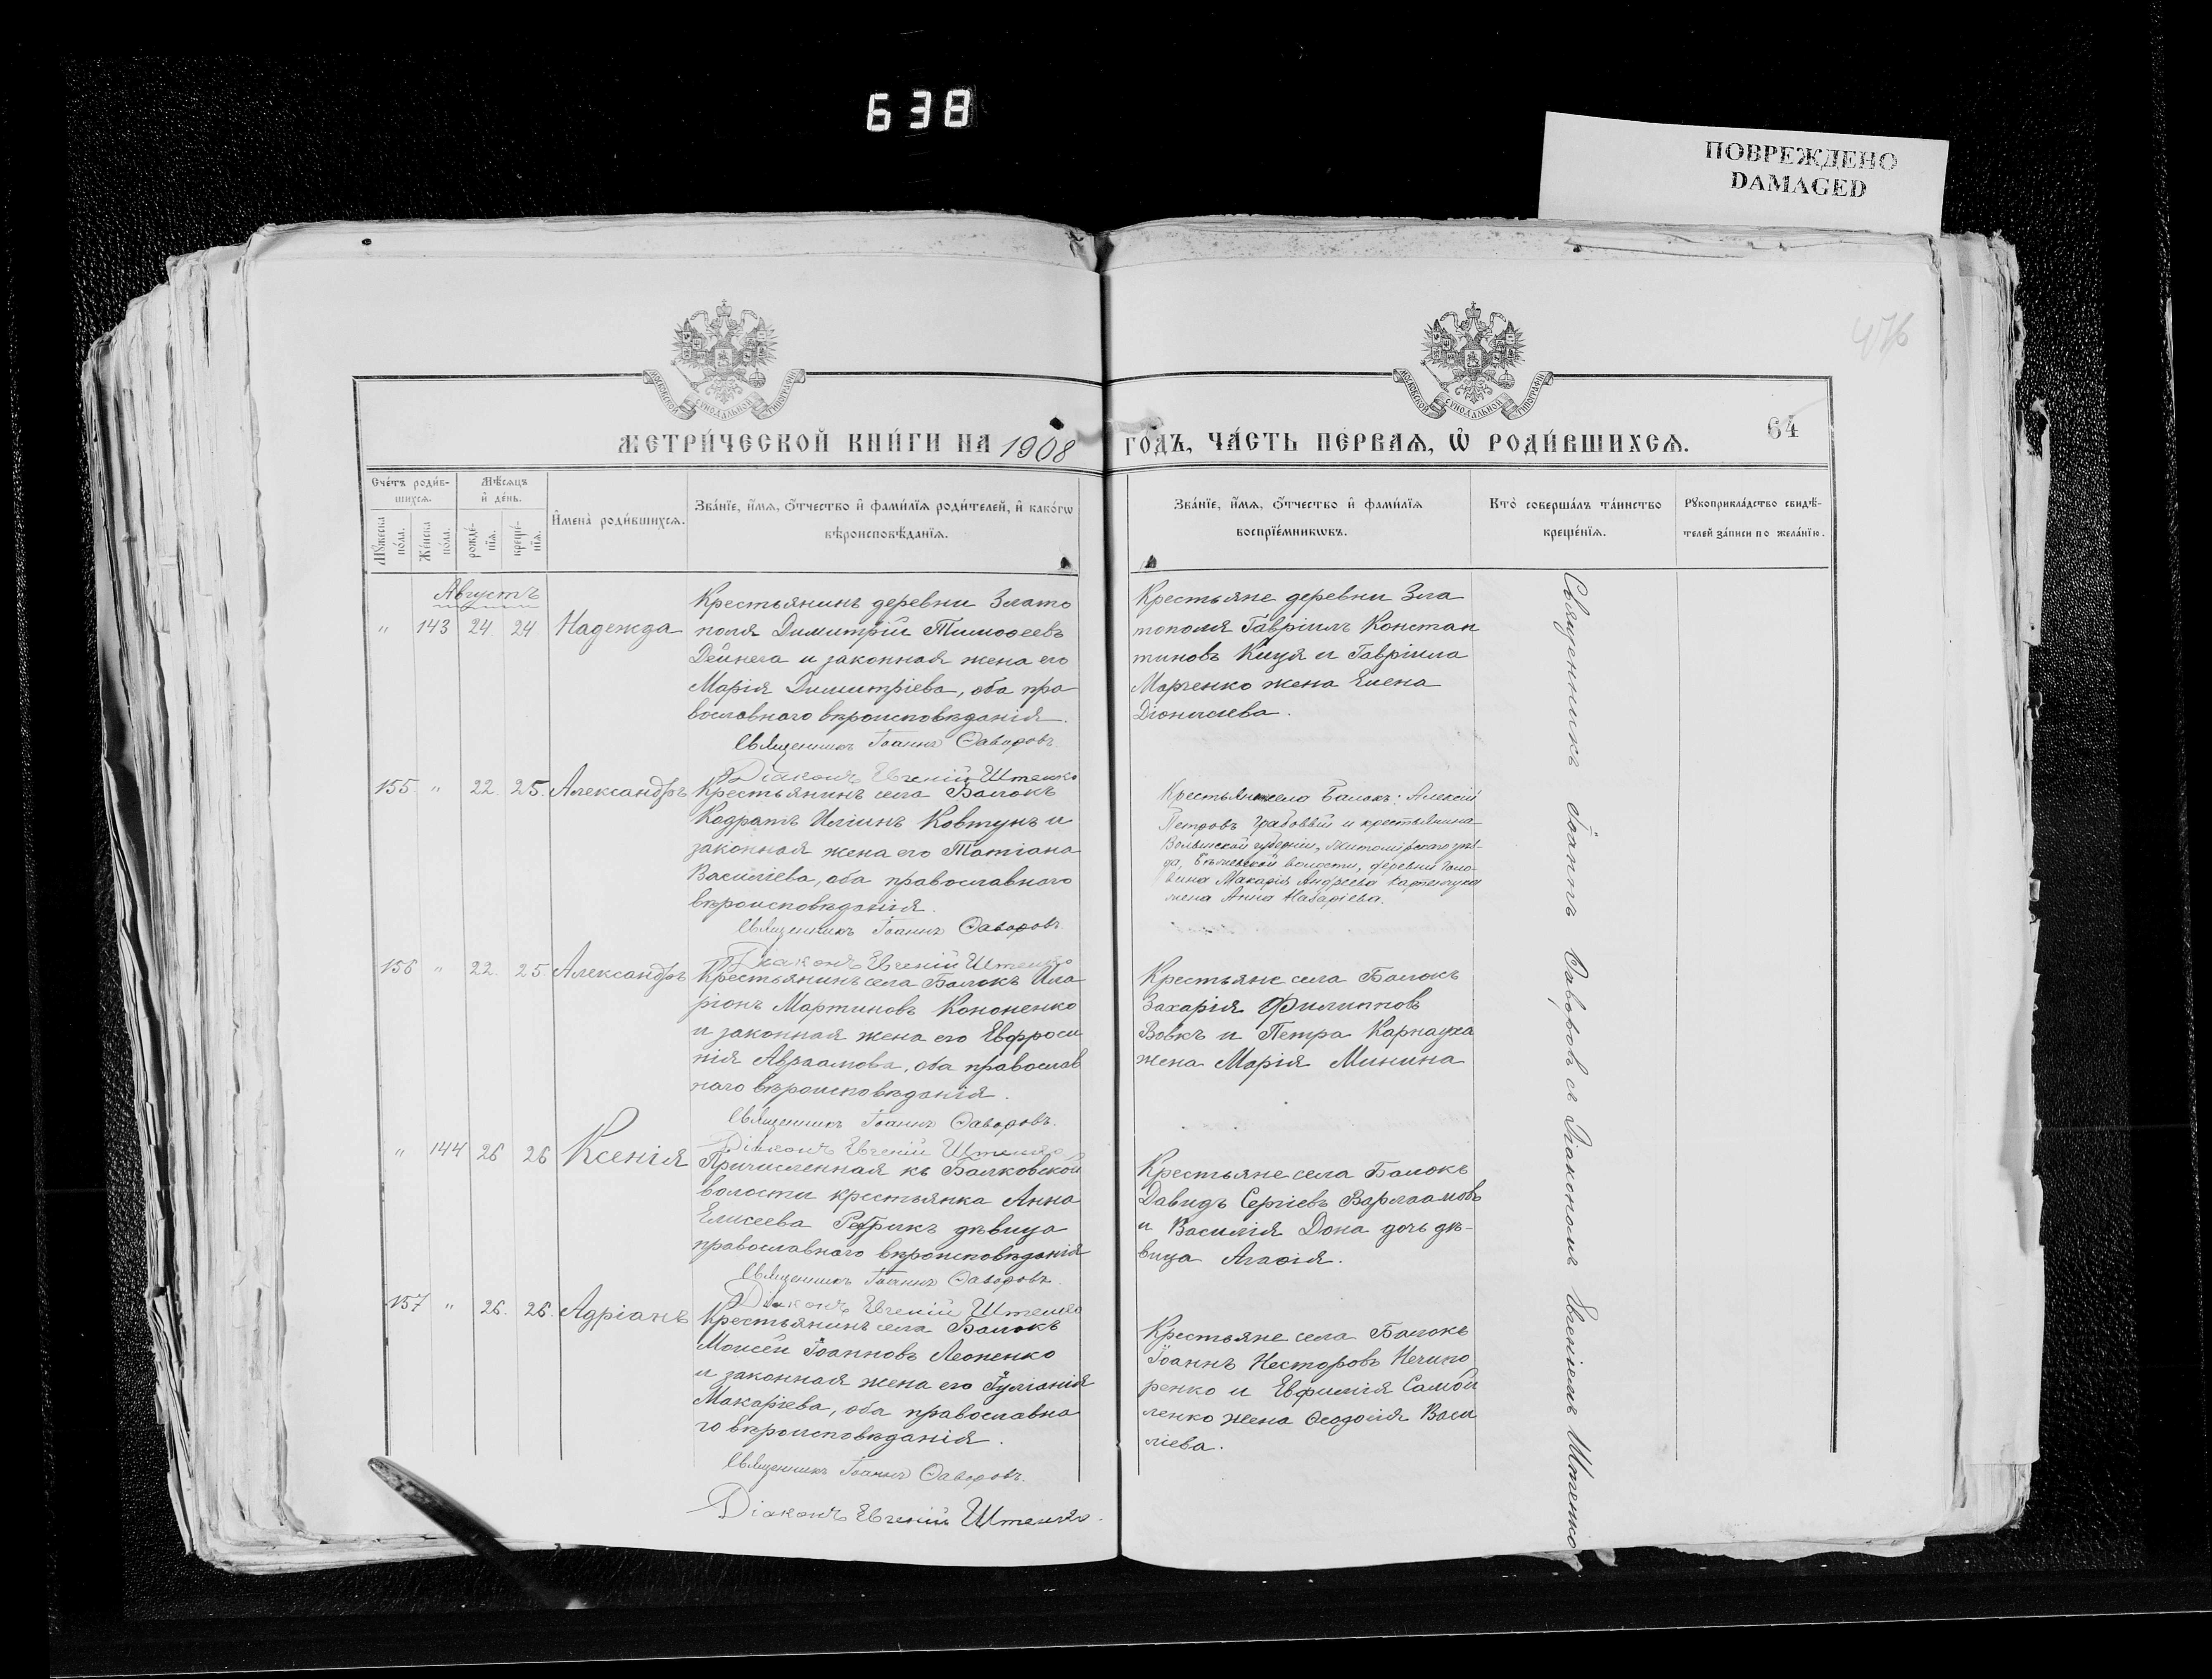 638
ПОВРЕЖДЕНО
DAMAGED
476
МОСКОВСКОЙ СѴНОДАЛЬНОЙ ТИПОГРАФІИ
МОСКОВСКОЙ СѴНОДАЛЬНОЙ ТИПОГРАФІИ
64
МЕТРИ́ЧЕСКОЙ КНИ́ГИ НА 1908 ГО́ДЪ, ЧА́СТЬ ПЕ́РВАѦ, Ѡ҆ РОДИ́ВШИХСѦ.
Сче́тъ роди́в-
шихсѧ.
Мѣ́сѧцъ
и҆ де́нь.
Мꙋ́жеска
по́ла.
Же́нска
по́ла.
рожде́-
нїѧ.
креще́-
нїѧ.
И҆мена̀ роди́вшихсѧ.
Зва́нїе, и҆́мѧ, ѻ҆́тчество и҆ фами́лїѧ роди́телей, и҆ како́гѡ
вѣроисповѣ́данїѧ.
Зва́нїе, и҆́мѧ, ѻ҆́тчество и҆ фами́лїѧ
воспрїе́мникѡвъ.
Кто̀ соверша́лъ та́инство
креще́нїѧ.
Рꙋкоприкла́дство свидѣ́-
телей за́писи по жела́нїю.
Августъ
" 143 24. 24 Надежда
Крестьянинъ деревни Злато
поля Димитрій Тимоѳеевъ
Дейнега и законная жена его
Марія Димитріева, оба пра
вославнаго вѣроисповѣданія.
Священникъ Іоаннъ Ѳаворовъ.
Діаконъ Евгеній Штенко
Крестьяне деревни Зла
тополя Гавріилъ Констан
тиновъ Куця и Гавріила
Марченко жена Елена
Діонисіева.
155. " 22. 25. Александръ
Крестьянинъ села Балокъ
Кодратъ Иліинъ Ковтунъ и
законная жена его Татіана
Василіева, оба православнаго
вѣроисповѣданія.
Священникъ Іоаннъ Ѳаворовъ
Діаконъ Евгеній Штенко
Крестьяне села Балокъ: Алексій
Петровъ Грабовый и крестьянина
Волынской губерніи, Житомірскаго уѣз-
да, волости, деревни
Макарія Андреева
жена Анна Назаріева.
156 " 22. 25 Александръ
Крестьянинъ села Балокъ Ила
ріонъ Мартиновъ Кононенко
и законная жена его Евфроси
нія Авраамова, оба православ
наго вѣроисповѣданія.
Священникъ Іоаннъ Ѳаворовъ.
Діаконъ Евгеній Штенко
Крестьяне села Балокъ
Захарія Филипповъ
Вовкъ и Петра Карнауха
жена Марія Минина
" 144 26 26 Ксенія
Причисленная къ Балковской
волости крестьянка Анна
Елисеева дѣвица
православнаго вѣроисповѣданія
Священникъ Іоаннъ Ѳаворовъ
Діаконъ Евгеній Штенко
Крестьяне села Балокъ
Давидъ Сергіевъ Варлаамовъ
и Василія Дона дочь дѣ-
вица Агаѳія.
157 " 26. 26. Адріанъ
Крестьянинъ села Балокъ
Моисей Іоанновъ Леоненко
и законная жена его Іуліанія
Макаріева, оба православна
го вѣроисповѣданія.
Священникъ Іоаннъ Ѳаворовъ.
Діаконъ Евгеній Штенко.
Крестьяне села Балокъ
Іоаннъ Несторовъ Нечипо
ренко и Евфимія Самой
ленко жена Ѳеодосія Васи
ліева.
Священникъ Іоаннъ Ѳаворовъ съ Діакономъ Евгеніемъ Штенко